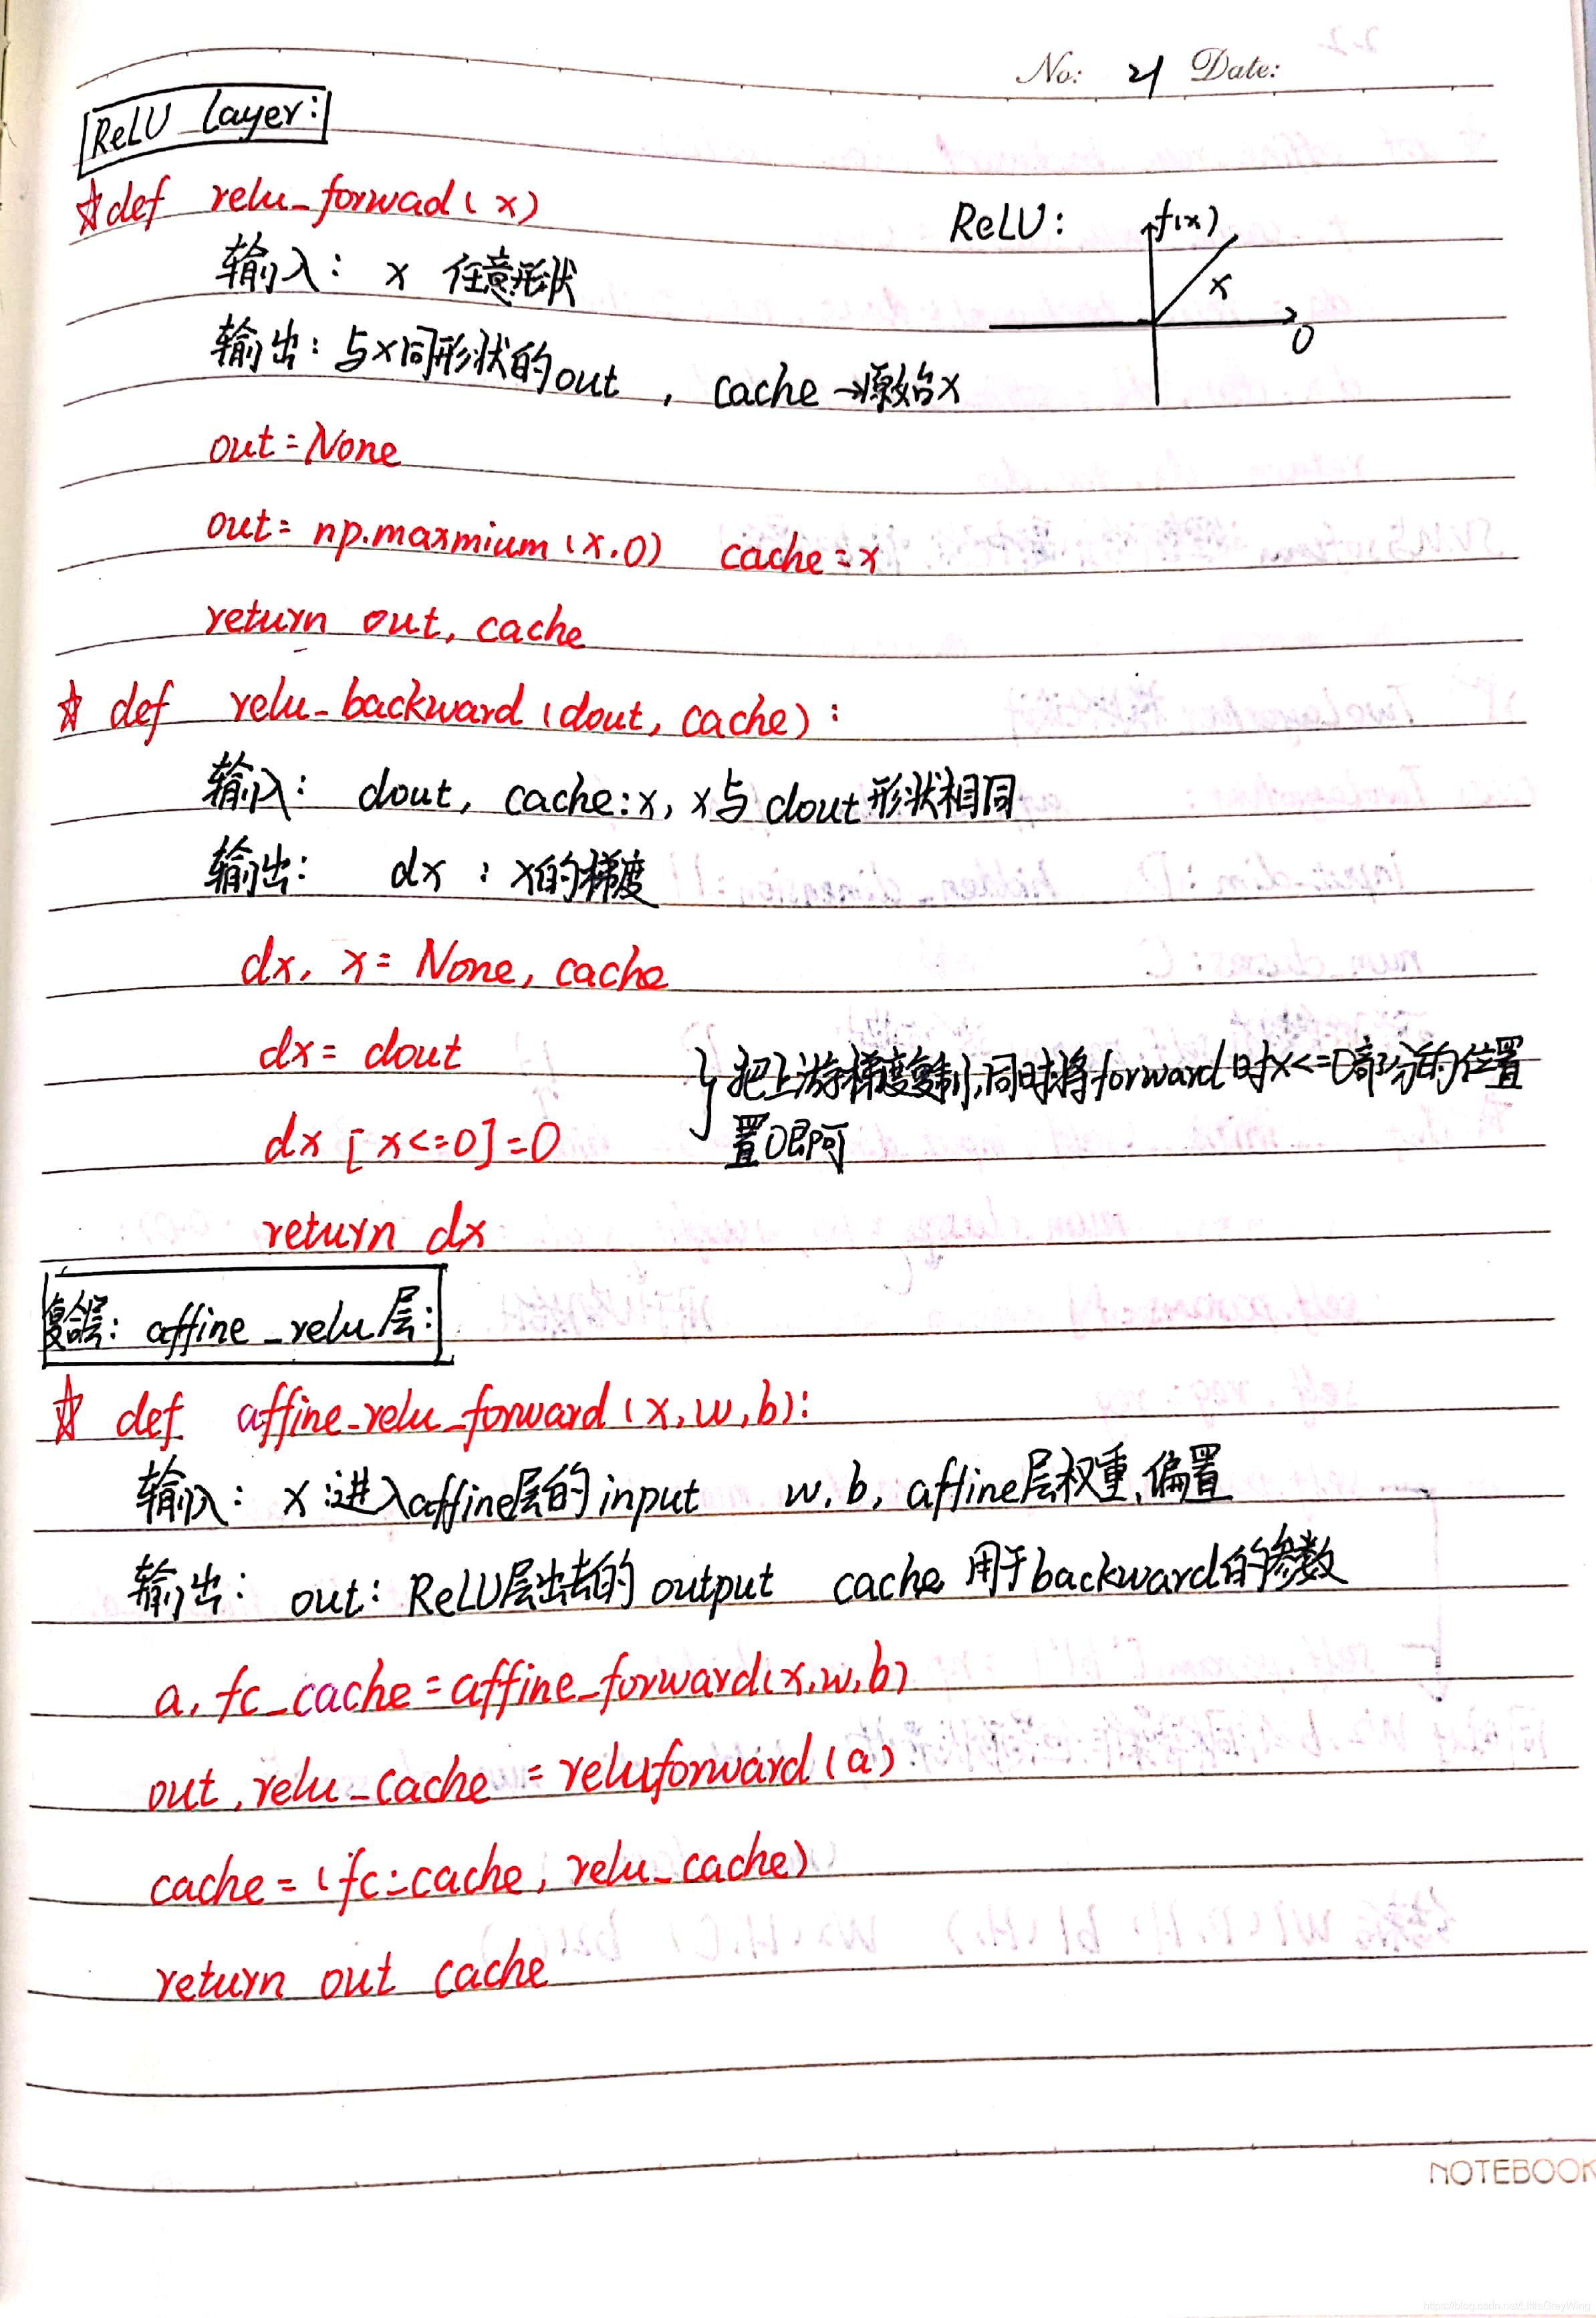 No: 21 Date:
ReLU Layer:
☆def relu_forwad(x)
ReLU: f(x)
x
0
输入: x 任意形状
输出: 与x同形状的out , cache→原始x
out=None
out= np.maxmium(x.0) cache=x
return out, cache
☆ def relu_backward(dout, cache):
输入: dout, cache:x, x与dout形状相同
输出: dx : x的梯度
dx, x= None, cache
dx= dout
dx [x<=0]=0
}把上游梯度复制,同时将forward时x<=0部分的位置
置0即可
return dx
复合层: affine_relu层:
☆ def affine_relu_forward(x,w,b):
输入: x:进入affine层的input w.b, affine层权重,偏置
输出: out: ReLU层出去的output cache 用于backward的参数
a, fc_cache=affine_forward(x,w,b)
out,relu_cache =reluforward(a)
cache=(fc_cache, relu_cache)
return out cache
NOTEBOOK
https://blog.csdn.net/LittleGreyWing